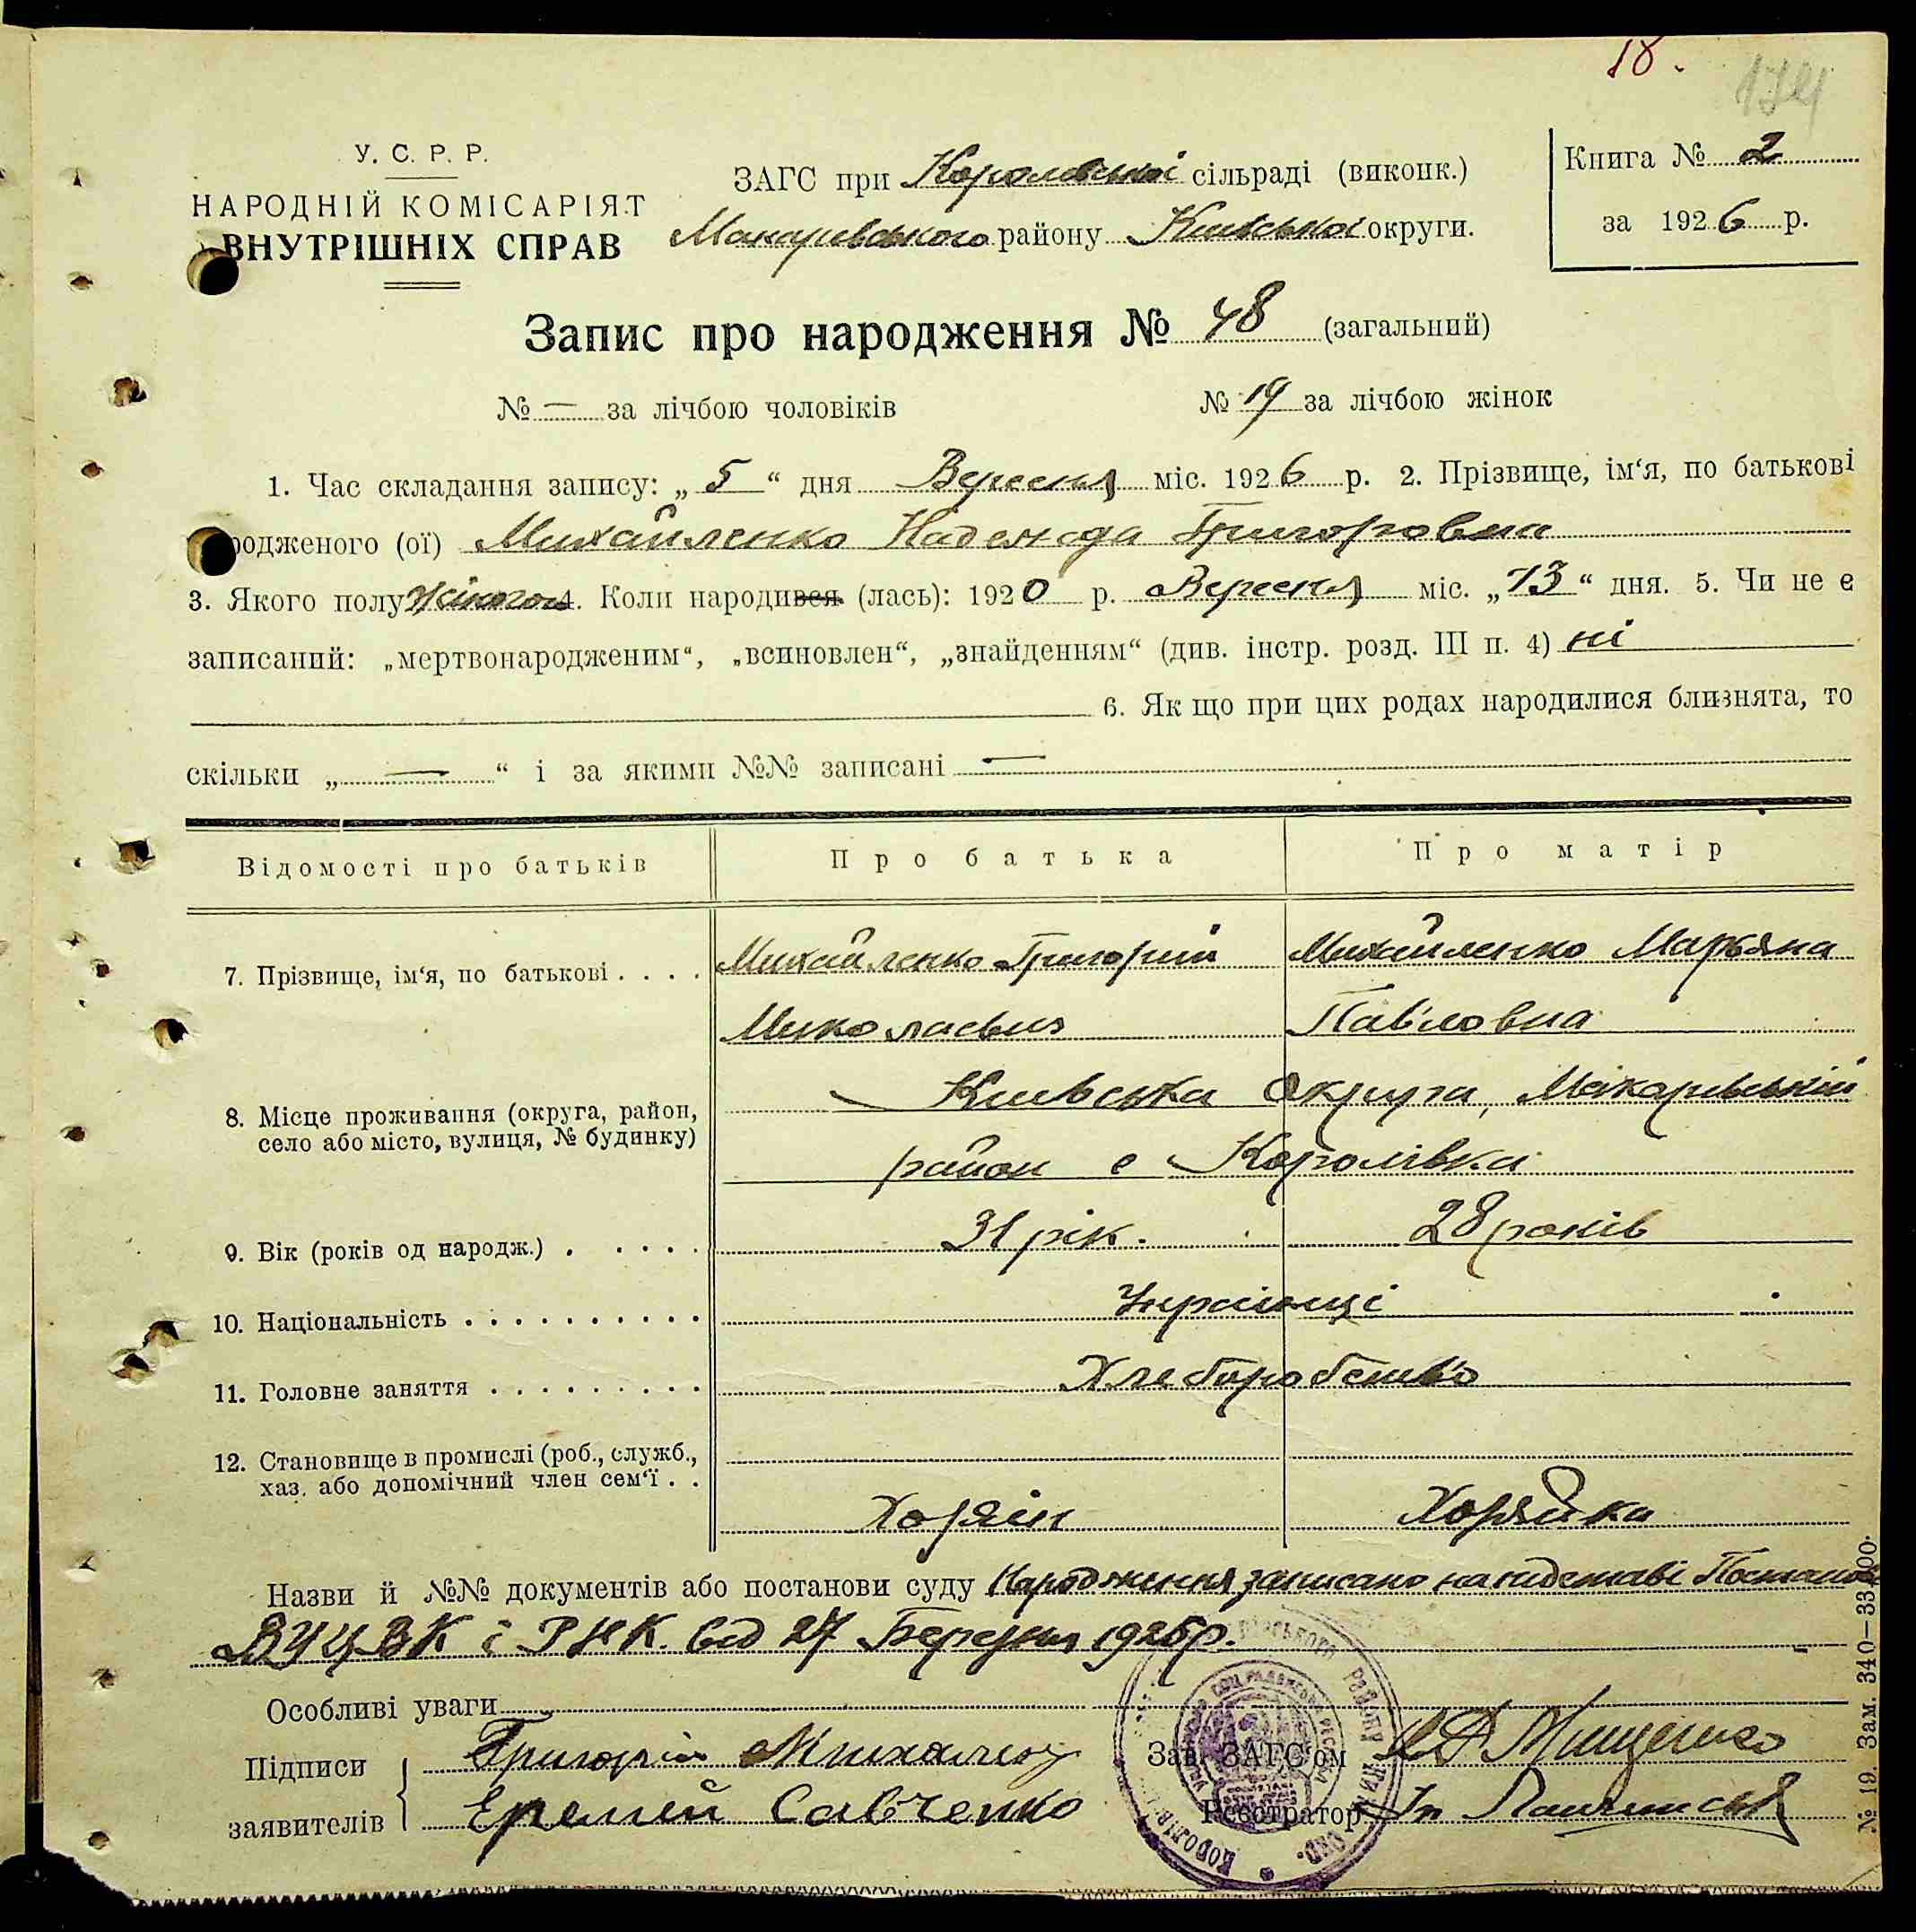 18.
174
У. С. Р. Р.
НАРОДНІЙ КОМІСАРІЯТ
ВНУТРІШНІХ СПРАВ
ЗАГС при Королівській сільраді (виконк.)
Макарівського району Київської округи.
Книга № 2
за 1926 р.
Запис про народження № 48 (загальний)
№ — за лічбою чоловіків № 19 за лічбою жінок
1. Час складання запису: „ 5 “ дня Вересня міс. 1926 р. 2. Прізвище, ім‘я, по батькові
родженого (ої) Михайленко Надежда Григоровна
3. Якого полу жіного 4. Коли народився (лась): 1920 р. Вересня міс. „ 13 “ дня. 5. Чи не є
записаний: „мертвонародженим“, „всиновлен“, „знайденням“ (див. інстр. розд. III п. 4) ні
6. Як що при цих родах народилися близнята, то
скільки „ — “ і за якими №№ записані —
Відомості про батьків Про батька Про матір
7. Прізвище, ім‘я, по батькові . . . . Михайленко Григорій Михайленко Марьяна
Миколаевич Павловна
8. Місце проживання (округа, район, Київська Округа, Макарівський
село або місто, вулиця, № будинку)
район с Королівка
9. Вік (років од народж.) . . . . . 31 рік. 28 років
10. Національність . . . . . . . . . . Українці
11. Головне заняття . . . . . . . . . Хлеборобство
12. Становище в промислі (роб., служб.,
хаз. або допомічний член сем‘ї . .
Хозяін Хозяйка
Назви й №№ документів або постанови суду Народження записано на підставі Постанови
ВУЦВК і РНК. від 27 Березня 1926р.
Особливі уваги
Підписи Григорій Михаленко Зав. ЗАГС‘ом Мищенко
заявителів Еремій Савченко Реєстратор
№ 19. Зам. 340—33300.